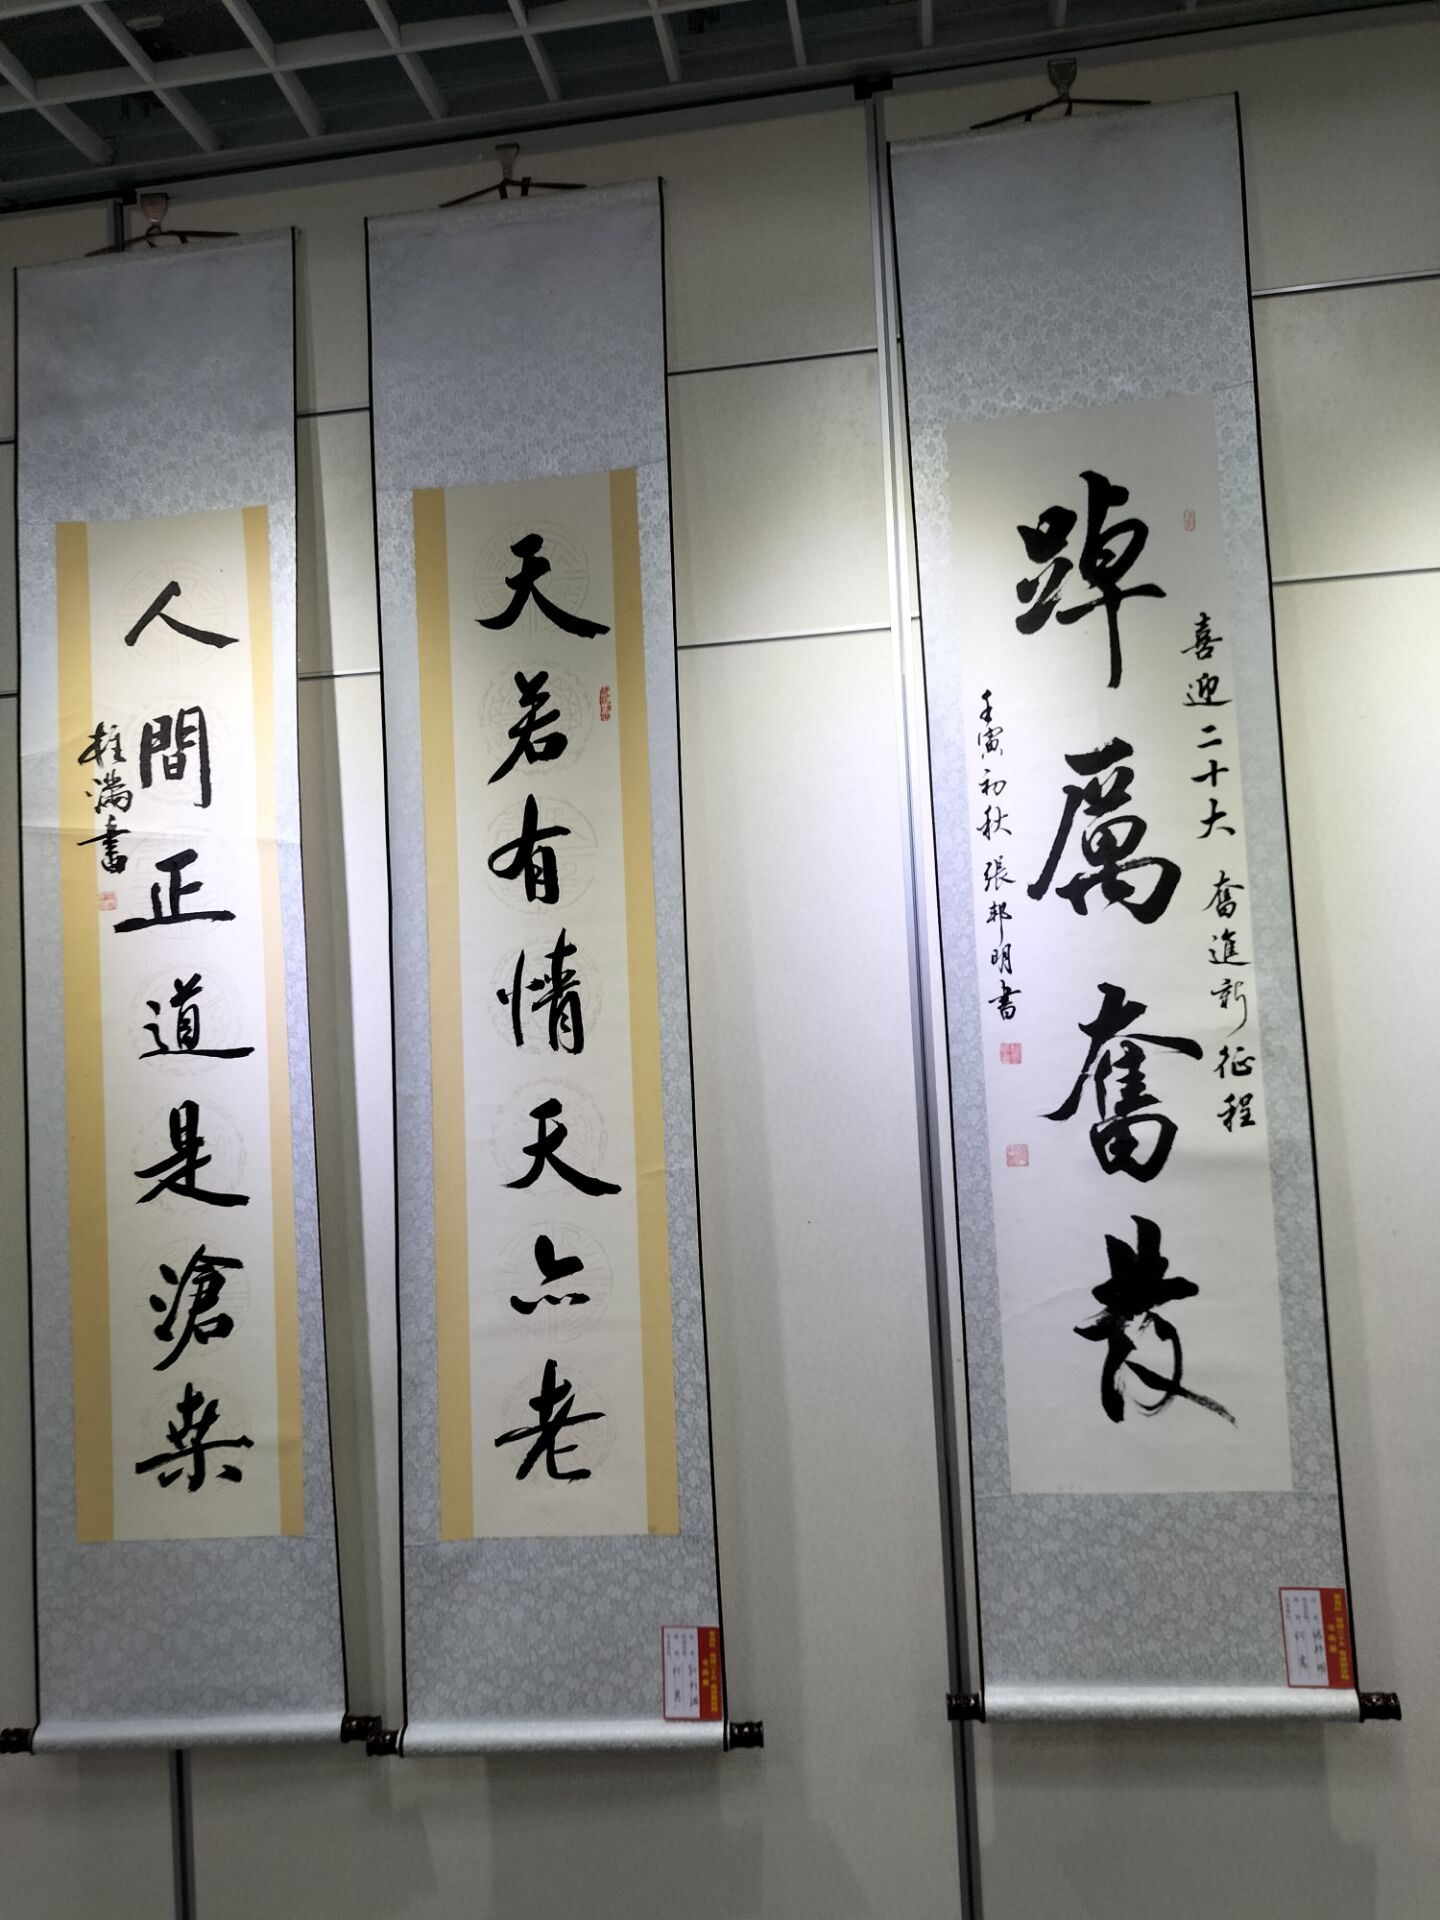 踔厲奮發
喜迎二十大 奮進新征程
壬寅初秋 張邦明書
天若有情天亦老
人間正道是滄桑
桂滿書